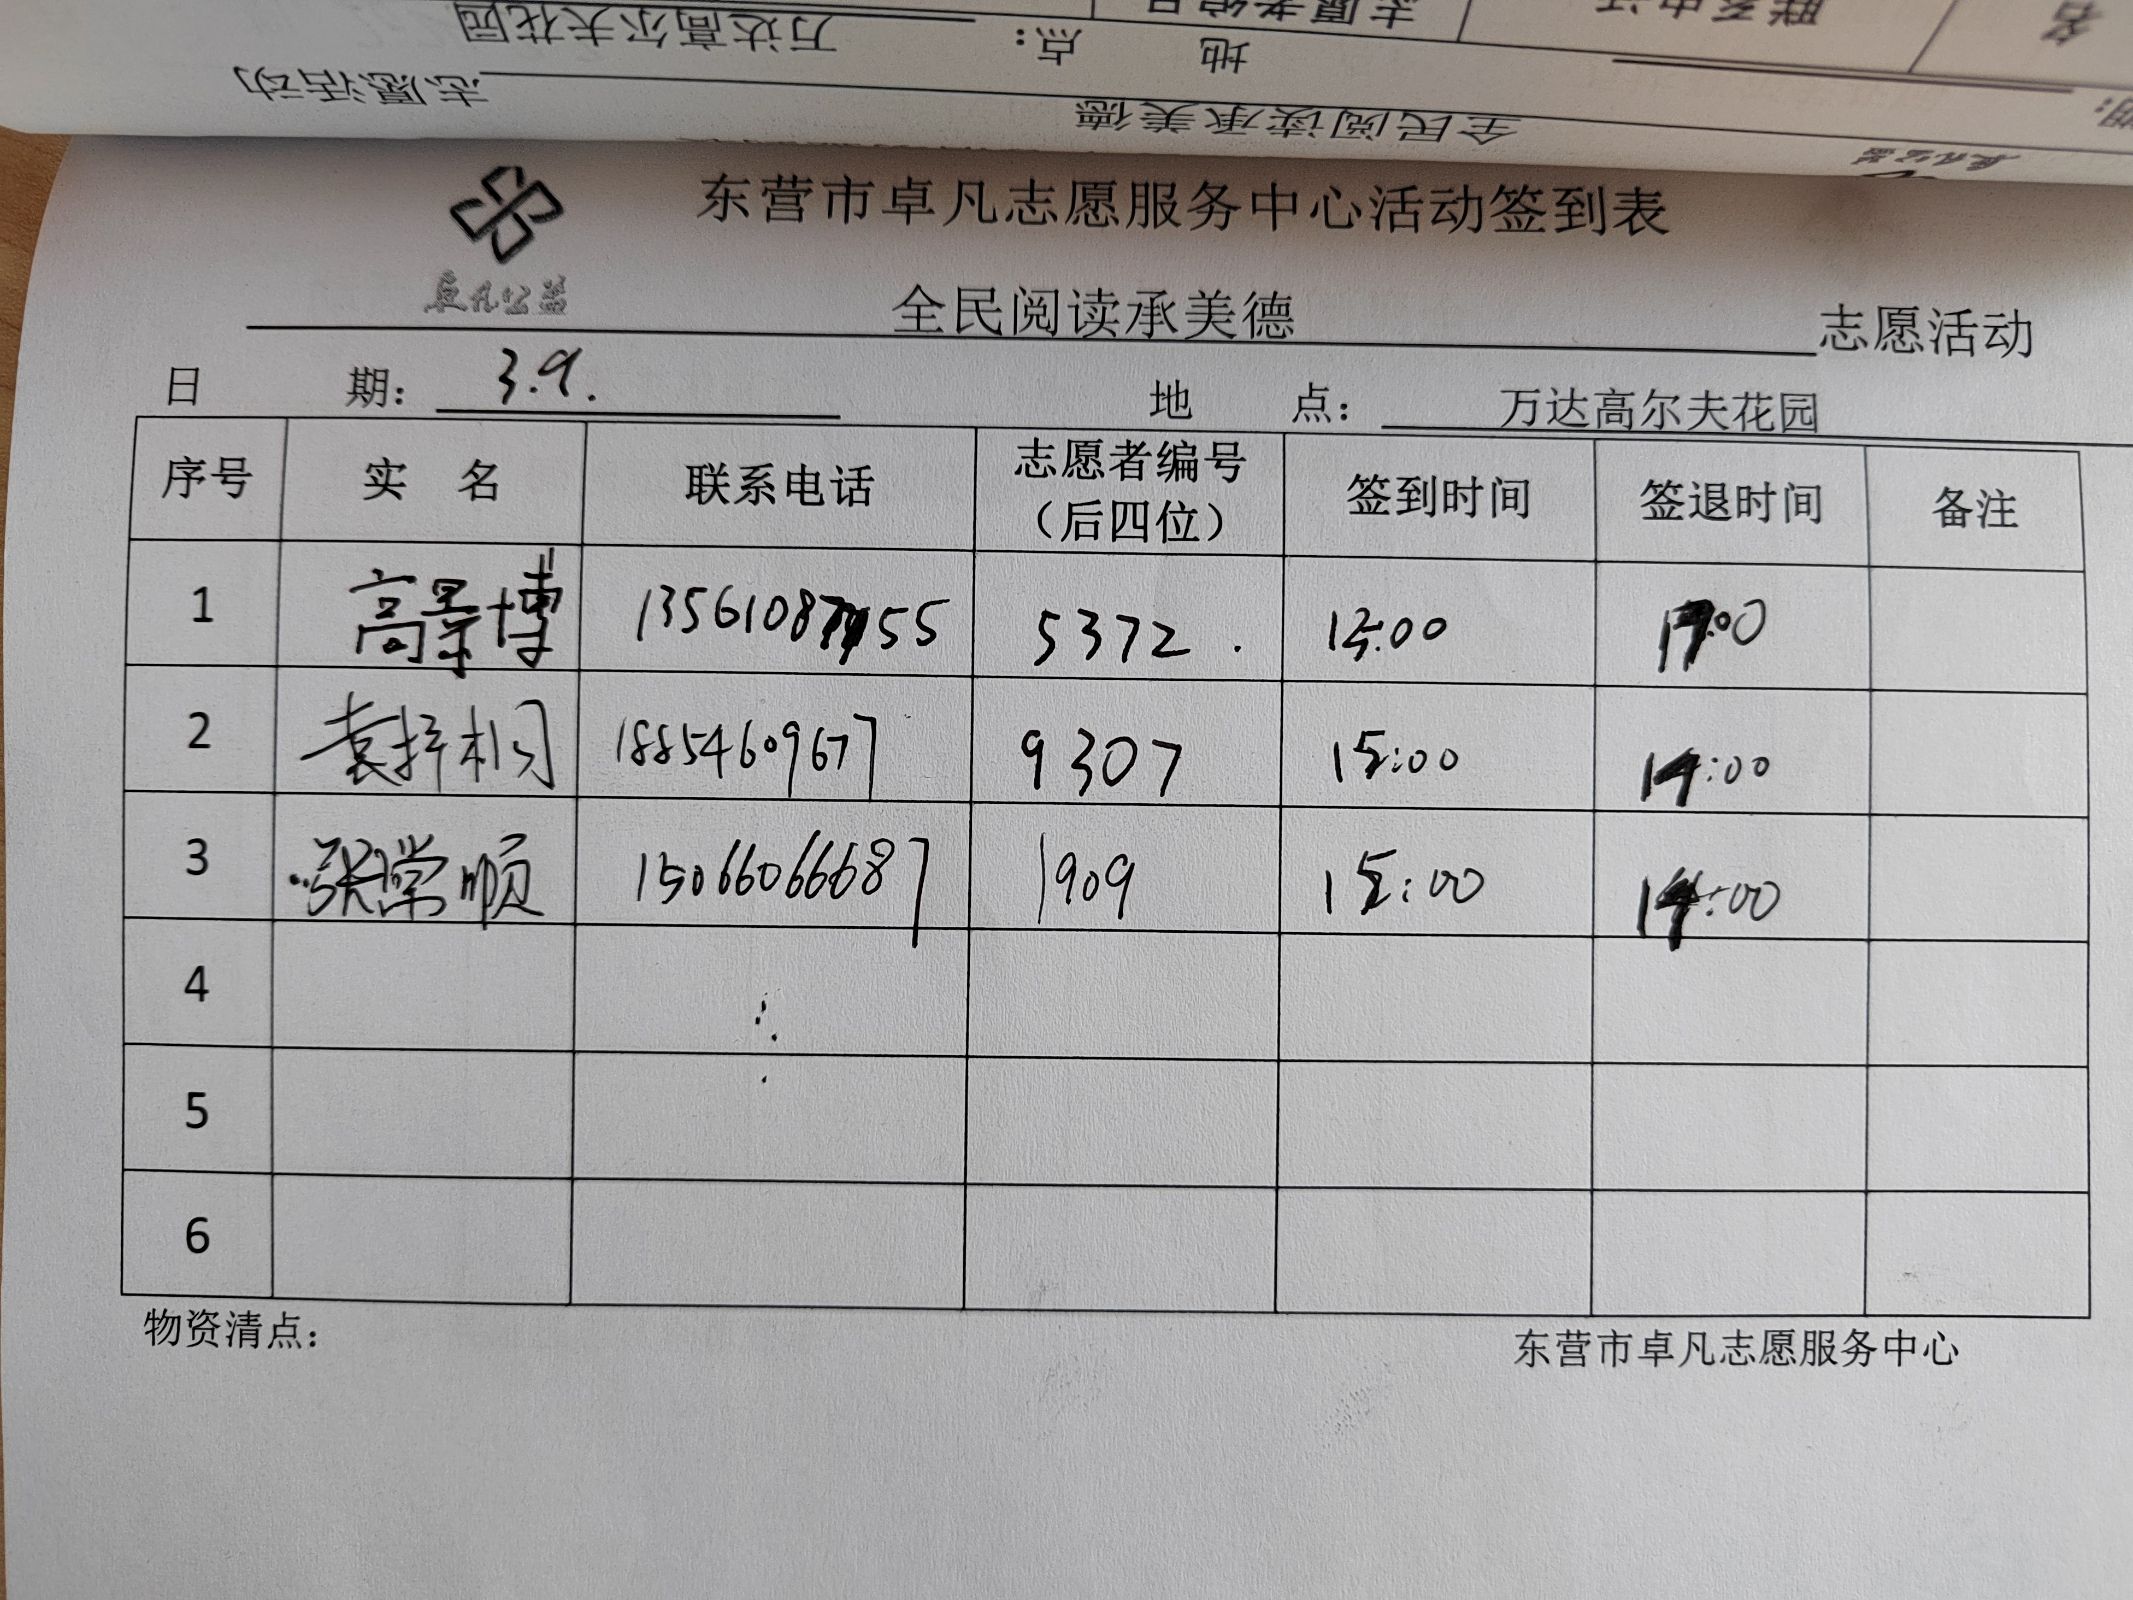 万达高尔夫花园
地 点：
志愿活动
全民阅读承美德
东营市卓凡志愿服务中心活动签到表
卓凡公益
全民阅读承美德 志愿活动
日 期： 3.9. 地 点： 万达高尔夫花园
序号 实 名 联系电话 志愿者编号（后四位） 签到时间 签退时间 备注
1 高景博 5372.
2 18854609677 9307 15:00 :00
3 张常顺 15066066687 1909 15:00 :00
4
5
6
物资清点： 东营市卓凡志愿服务中心